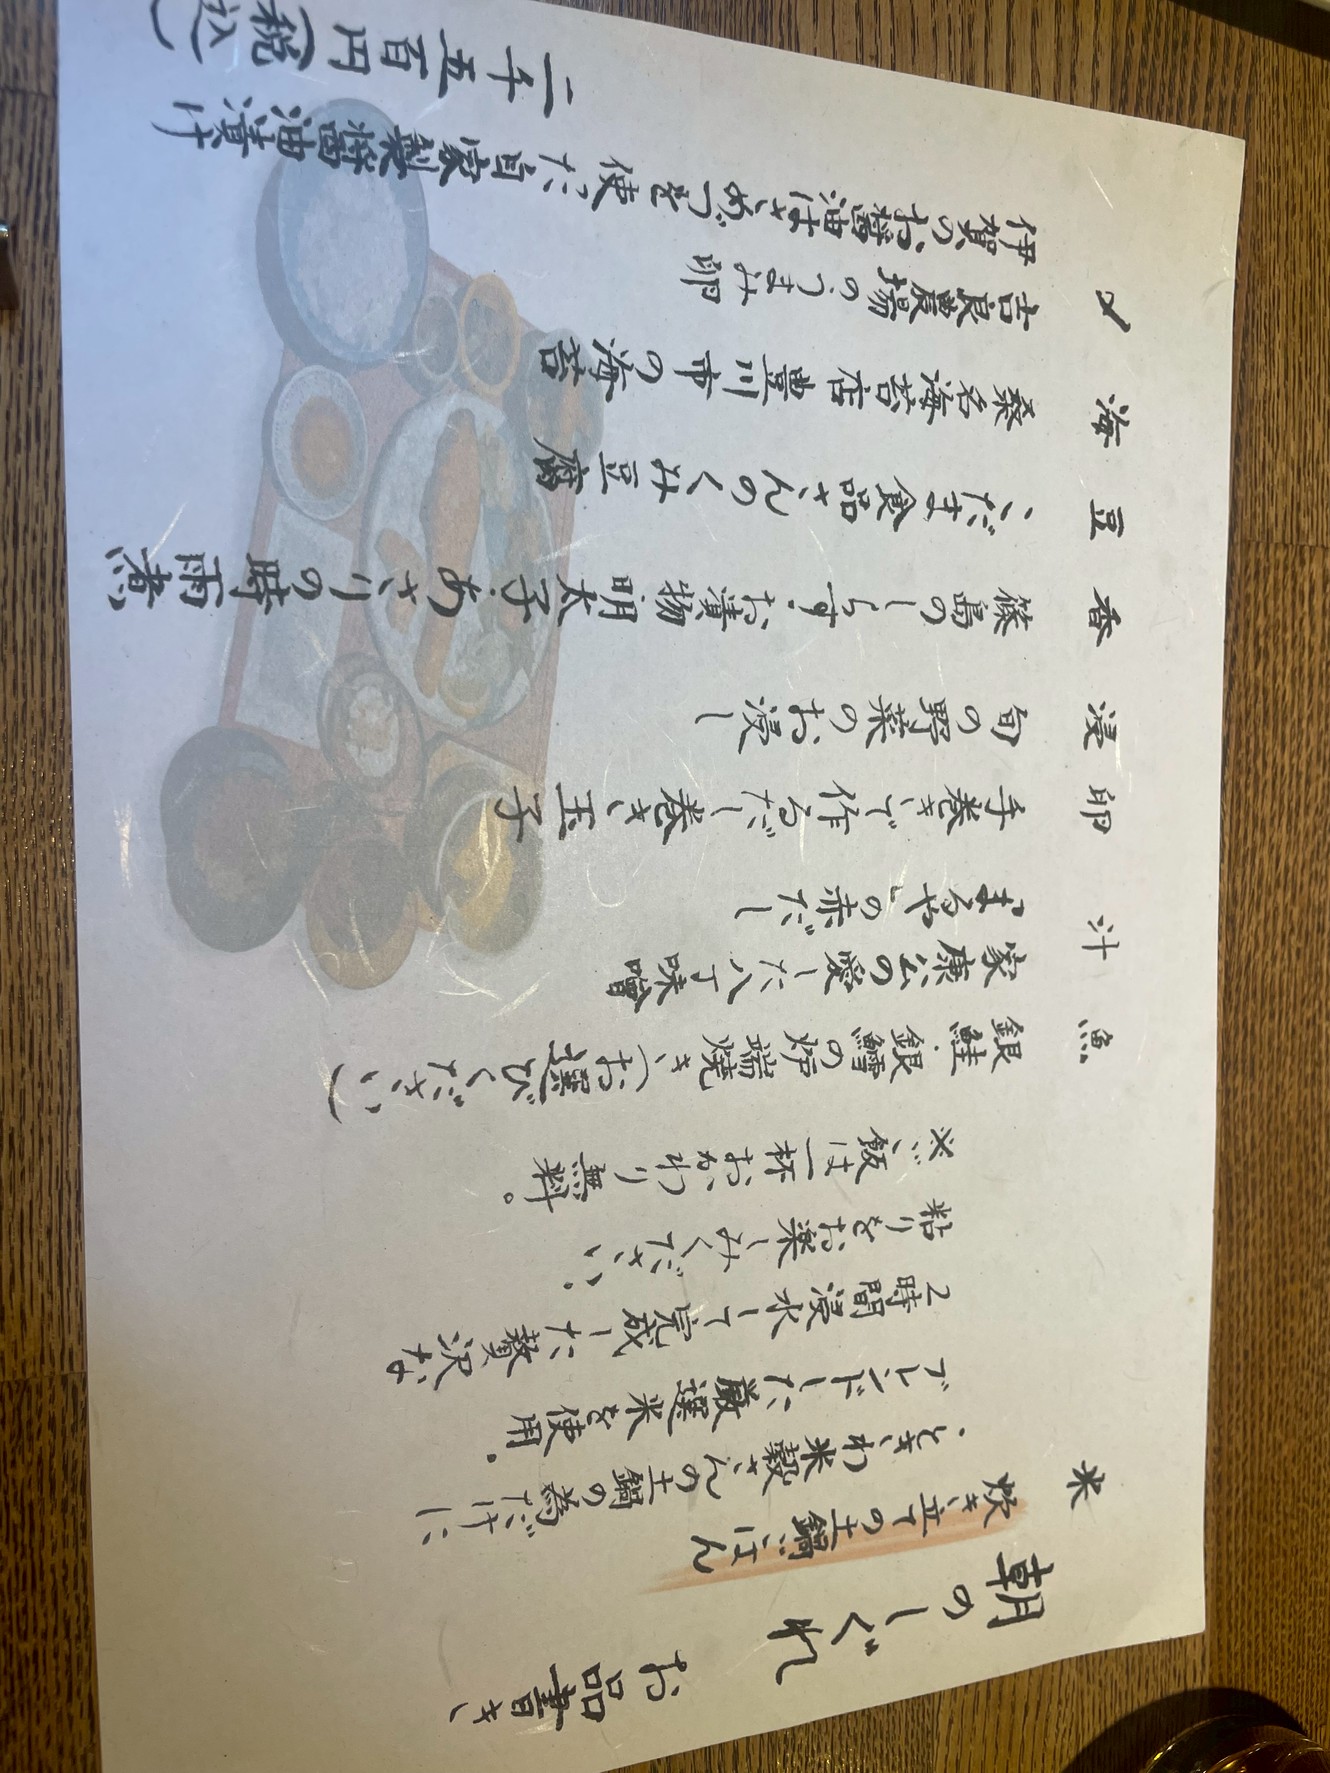 朝のしぐれ
お品書き
米
炊き立ての土鍋ごはん
・ときわ米穀さんの土鍋の為だけに
ブレンドした厳選米を使用。
2時間浸水して完成した贅沢な
粘りをお楽しみください。
※ご飯は一杯おかわり無料。
魚
銀鮭・銀鱈の炉端焼き(お選びください)
汁
家康公の愛した八丁味噌
"まるや"の赤だし
卵
手巻きで作るだし巻き玉子
浸
旬の野菜のお浸し
香
篠島のしらす・お漬物 明太子・あさりの時雨煮
豆
こだま食品さんのくみ豆腐
海
桑名海苔店 豊川市の海苔
〆
吉良農場のうまみ卵
伊賀のお醤油はさめづを使った自家製醤油漬け
二千五百円(税込)